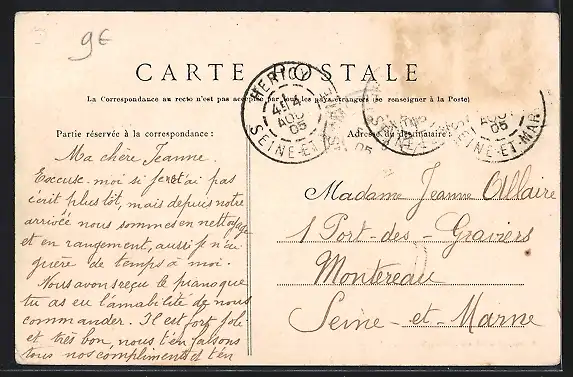 9€
CARTE POSTALE
La Correspondance au recto n'est pas acceptée par tous les pays étrangers (se renseigner à la Poste)
HERICY
4 AOU
05
SEINE-ET-
05
SEINE-ET-MAR
Partie réservée à la correspondance :
Ma chère Jeanne.
Excuse-moi si je t'ai pas
écrit plus tôt, mais depuis notre
arrivée nous sommes en nettoyage
et en rangement, aussi je n'ai
guère de temps à moi.
Nous avons reçu le piano que
tu as eu l'amabilité de nous
commander. Il est fort joli
et très bon, nous t'en faisons
tous nos compliments et t'en
Adresse du destinataire :
Madame Jeanne Allaire
1 Port-des-Graviers
Montereau
Seine-et-Marne